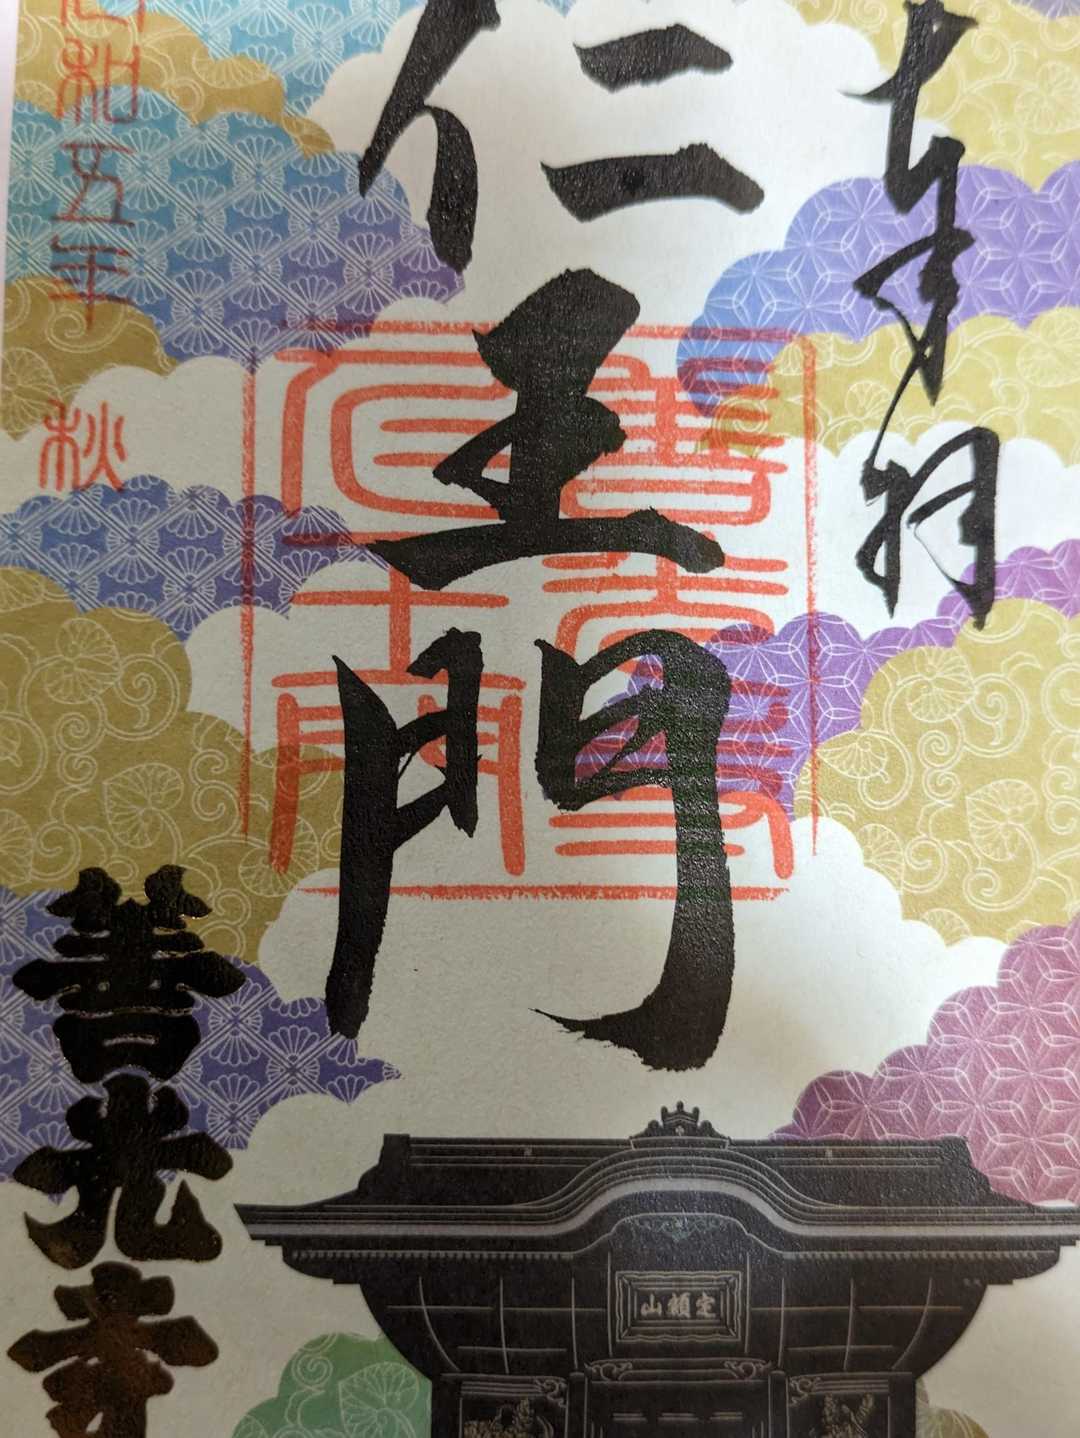 奉拝
仁王門
和五年
秋
善光寺
善光寺
仁王門
定額山